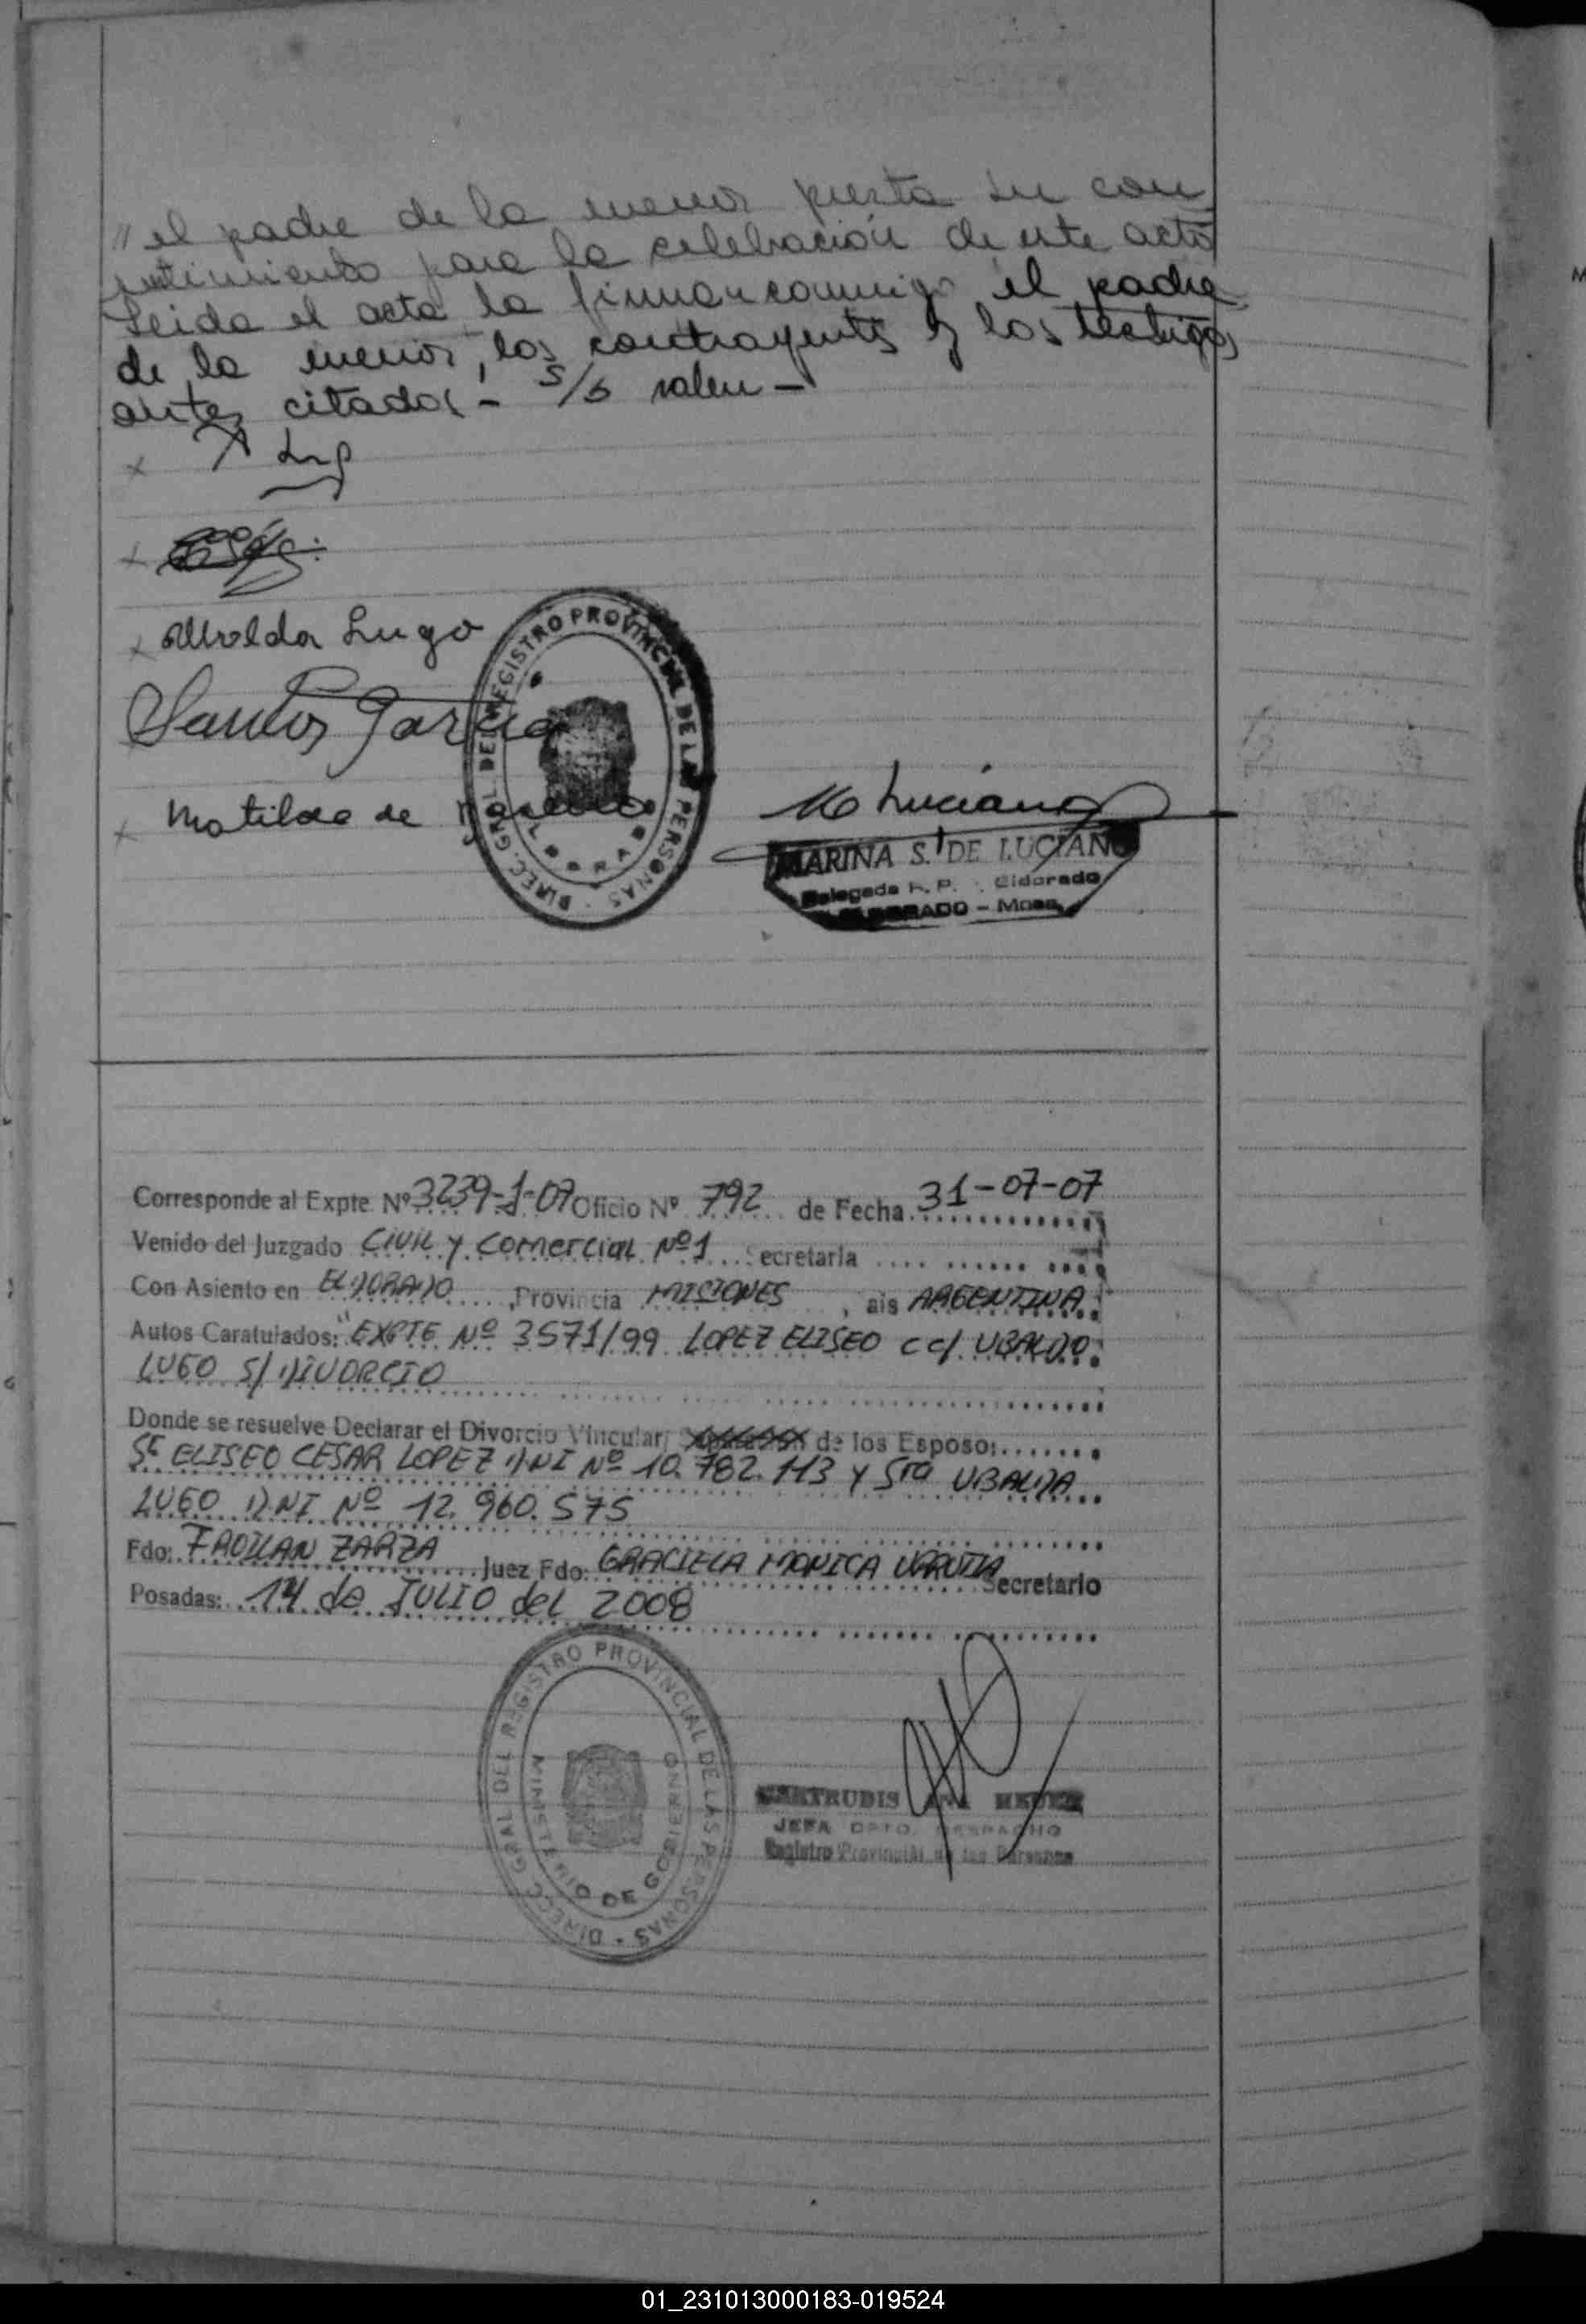 " el padre de la menor presta su con
sentimiento para la celebración de este acto
Leida el acta la firman conmigo el padre
de la menor, los contrayentes y los testigos
antes citados - S/b valen -
x
x
x Ubalda Lugo
Santos Garcia
x Matilde de
DIREC. GRAL. DEL REGISTRO PROVINCIAL DE LAS PERSONAS
M Luciano
MARINA S. DE LUCIANO
Delegada R. P. Eldorado
ELDORADO - Mnes.
Corresponde al Expte Nº 3239-J-07 Oficio Nº 792 de Fecha 31-07-07
Venido del Juzgado CIVIL y Comercial Nº 1 Secretaria
Con Asiento en ELDORADO, Provincia MISIONES, ais ARGENTINA
Autos Caratulados: "EXPTE Nº 3571/99 LOPEZ ELISEO C c/ UBALDO
LUGO S/ DIVORCIO
Donde se resuelve Declarar el Divorcio Vincular, de los Esposo:
Sr ELISEO CESAR LOPEZ DNI Nº 10.782.113 y Sra UBALDA
LUGO D.NI Nº 12.960.575
Fdo: FROILAN ZARZA Juez Fdo: GRACIELA MONICA URRUTIA Secretario
Posadas: 14 de JULIO del 2008
DIRECC. GRAL DEL REGISTRO PROVINCIAL DE LAS PERSONAS
MINISTERIO DE GOBIERNO
GERTRUDIS ANA
JEFA DPTO. DESPACHO
Registro Provincial de las Personas
01_231013000183-019524